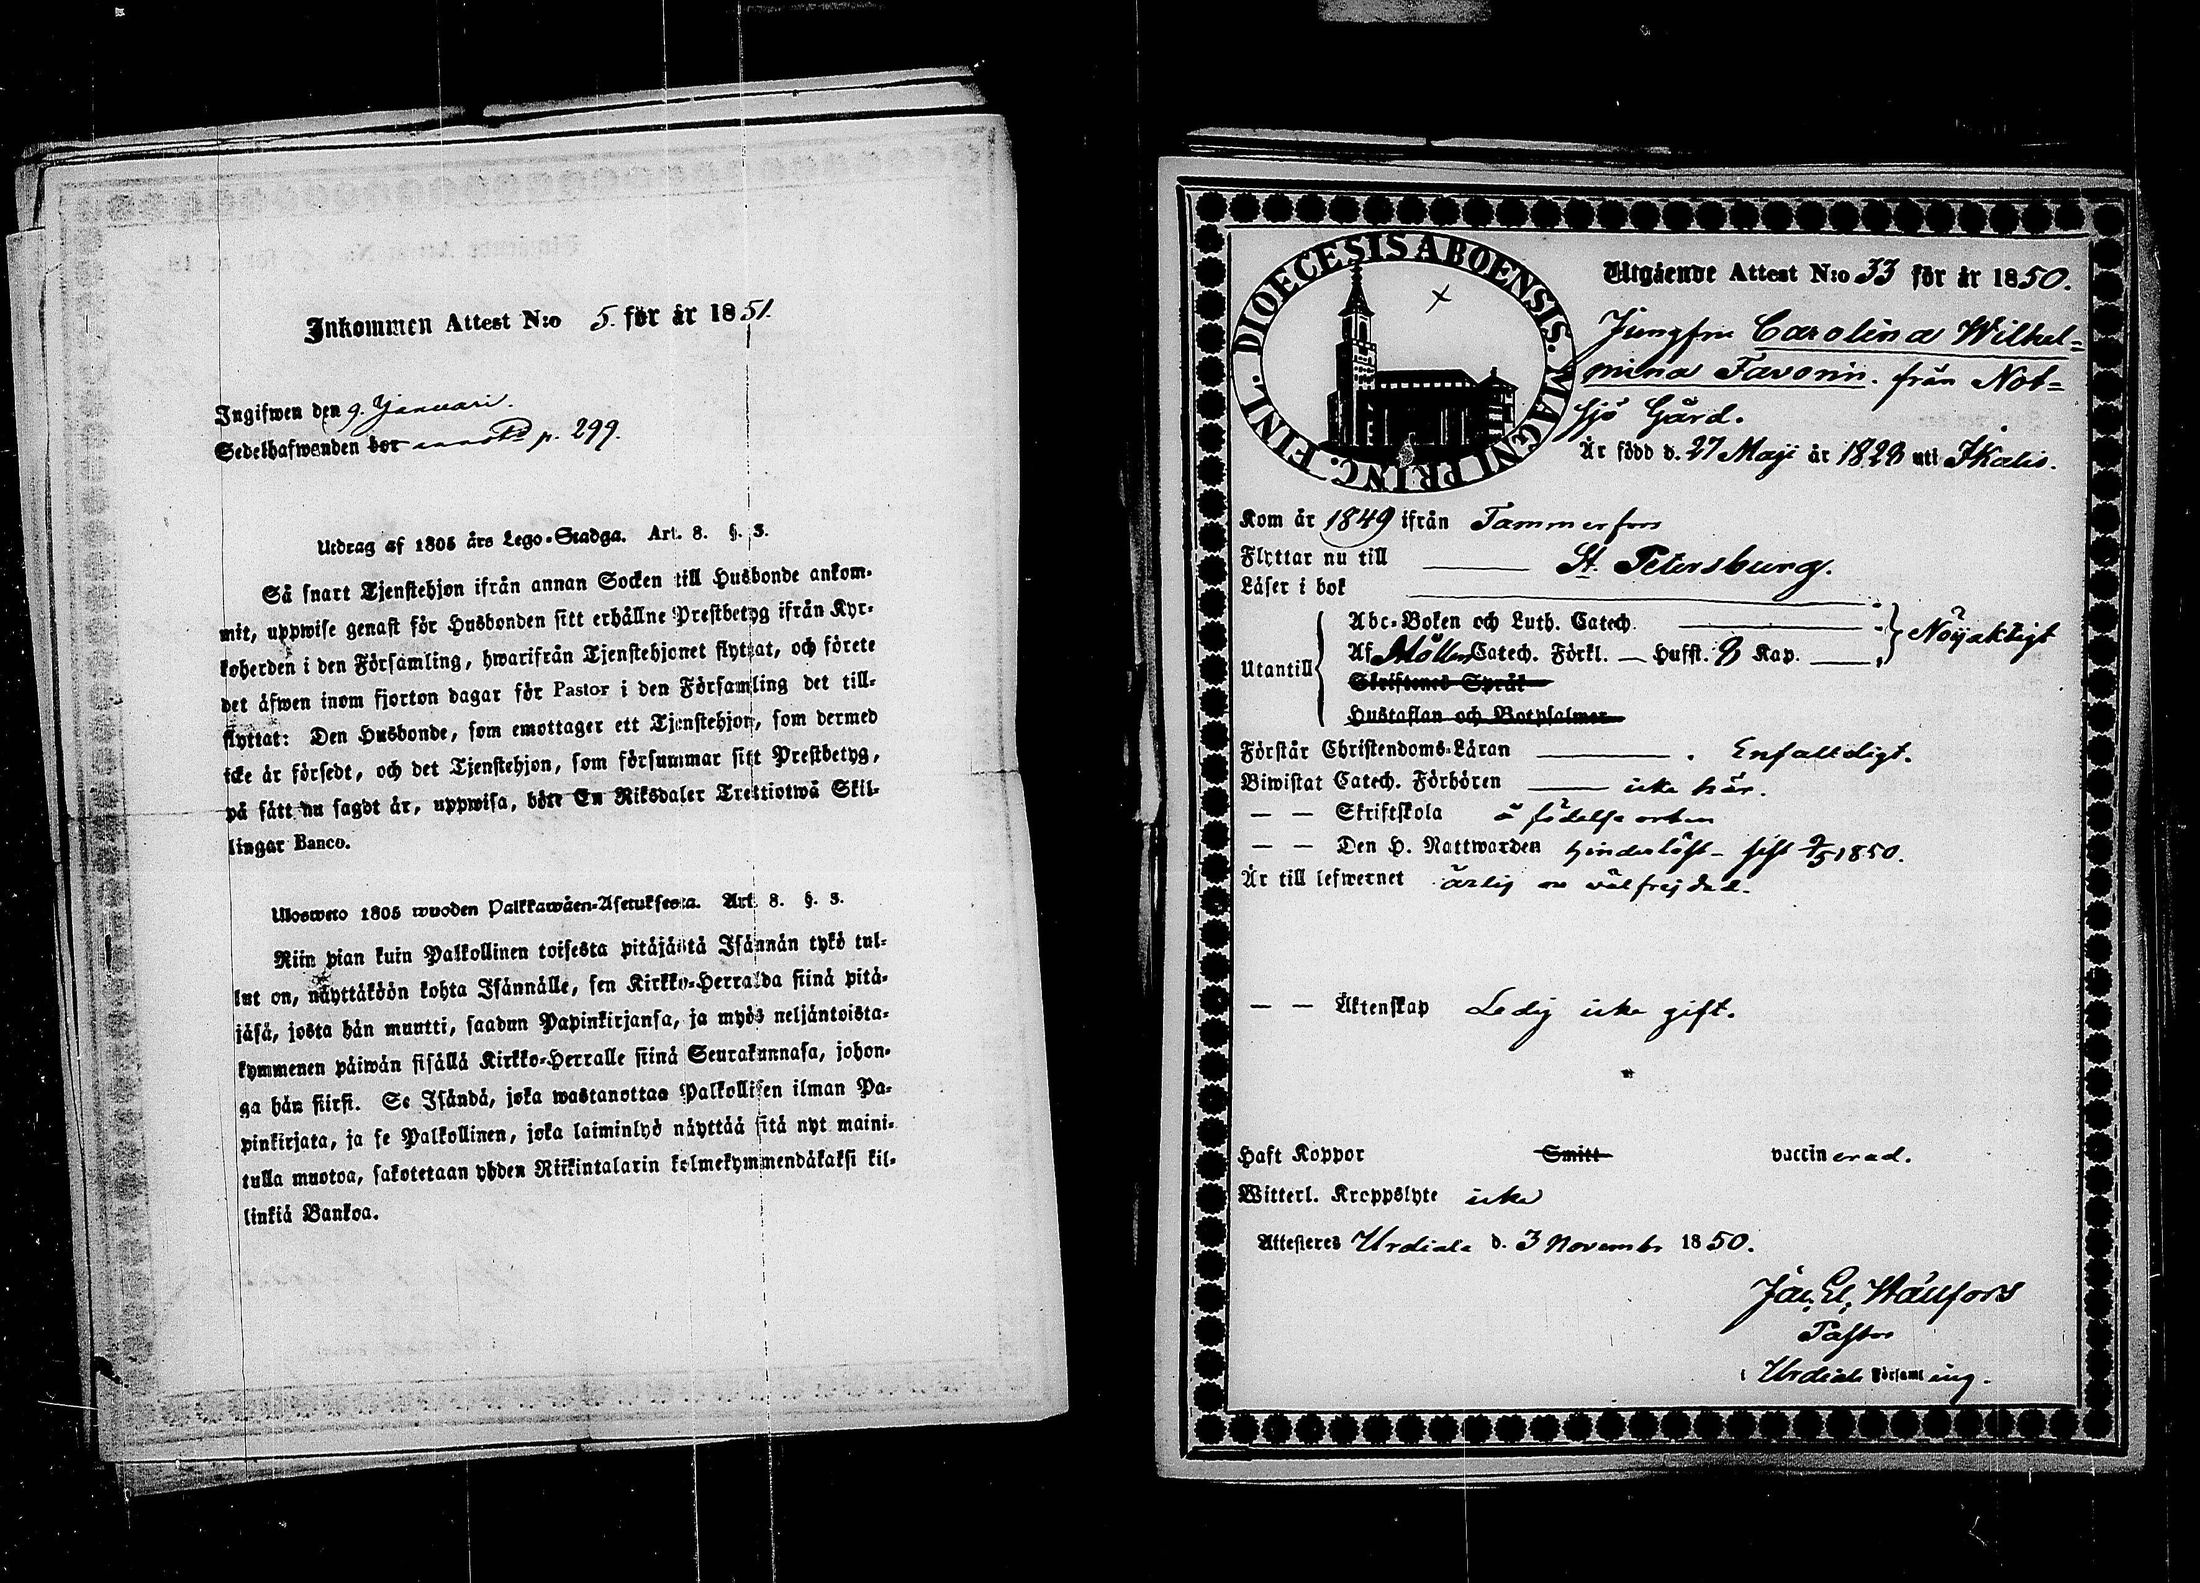 Inkommen Attest N:o 5. för år 1851.
Ingifwen den 9. Januari.
Sedelhafwanden bor p. 299.
Utdrag af 1805 års Lego-Stadga. Art. 8. §. 3.
Så snart Tjenstehjon ifrån annan Socken till Husbonde ankom-
mit, uppwise genast för Husbonden sitt erhållne Prestbetyg ifrån Kyr-
koherden i den Församling, hwarifrån Tjenstehjonet flyttat, och förete
det äfwen inom fjorton dagar för Pastor i den Församling det till-
flyttat: Den Husbonde, som emottager ett Tjenstehjon, som dermed
icke är försedt, och det Tjenstehjon, som försummar sitt Prestbetyg,
på sätt nu sagdt är, uppwisa, böte En Riksdaler Trettiotwå Skil-
lingar Banco.
Ulosweto 1805 wuoden Palkkawäen-Asetuksesta. Art. 8. §. 3.
Niin pian kuin Palkollinen toisesta pitäjästä Isännän tykö tul-
lut on, näyttäköön kohta Isännälle, sen Kirkko-Herralda siinä pitä-
jäsä, josta hän muutti, saadun Papinkirjansa, ja myös neljäntoista-
kymmenen päiwän sisällä Kirkko-Herralle siinä Seurakunnasa, johon-
ga hän siirsi. Se Isändä, joka wastanottaa Palkollisen ilman Pa-
pinkirjata, ja se Palkollinen, joka laiminlyö näyttää sitä nyt maini-
tulla muotoa, sakotetaan yhden Riikintalarin kolmekymmendäkaksi kil-
linkiä Bankoa.
FINL. DIOECESIS ABOENSIS. MAGNI PRINC.
Utgående Attest N:o 33 för år 1850.
Jungfru Carolina Wilhel-
mina Favorin. från Not-
sjö Gård.
Är född d. 27 Maji år 1828 uti Ikalis.
Kom år 1849 ifrån Tammerfors
Flyttar nu till St. Petersburg.
Läser i bok
Abc-Boken och Luth. Catech.
Utantill Af Möllers Catech. Förkl. — Husst. 8 Kap. Nöyaktigt
Skriftenes Språk
Hustaflan och Botpsalmer
Förstår Christendoms-Läran . Enfalldigt.
Biwistat Catech. Förhören icke här.
— — Skriftskola å födelse orten
— — Den H. Nattwarden hinderlöst – sist 9/5 1850.
Är till lefwernet ärlig oc välfrejdad.
— — Äktenskap Ledig icke gift.
Haft Koppor Smitt vaccinerad.
Witterl. Kroppslyte icke
Attesteres Urdiala d. 3 Novembr 1850.
Jac. El. Hällfors
Pastor
i Urdiala Församling.